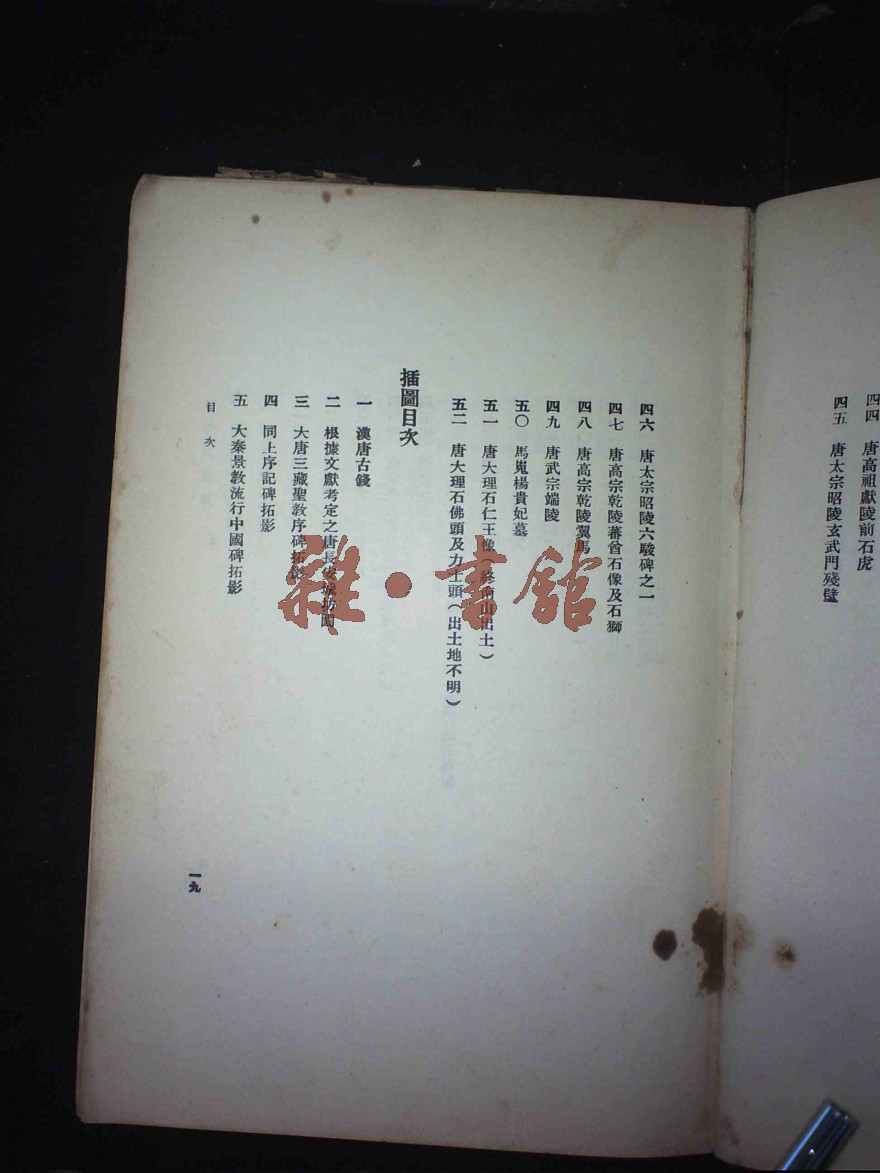 四四　唐高祖獻陵前石虎
四五　唐太宗昭陵玄武門殘壁
四六　唐太宗昭陵六駿碑之一
四七　唐高宗乾陵蕃酋石像及石獅
四八　唐高宗乾陵翼馬
四九　唐武宗端陵
五〇　馬嵬楊貴妃墓
五一　唐大理石仁王像（終南山出土）
五二　唐大理石佛頭及力士頭（出土地不明）
插圖目次
一　漢唐古錢
二　根據文獻考定之唐長安城坊圖
三　大唐三藏聖教序碑拓影
四　同上序記碑拓影
五　大秦景教流行中國碑拓影
目次
一九
雜·書館